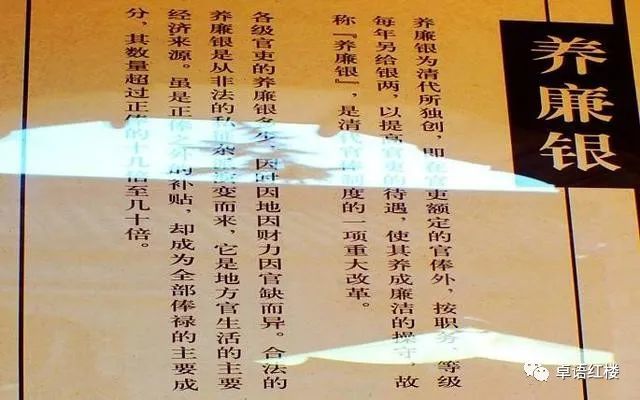 养廉银
养廉银为清代所独创，即在官吏额定的官俸外，按职务、等级
每年另给银两，以提高官吏的待遇，使其养成廉洁的操守，故
称『养廉银』，是清代官俸制度的一项重大改革。
各级官吏的养廉银多少，因时因地因财力因官缺而异。合法的
养廉银是从非法的私变而来，它是地方官生活的主要
经济来源。虽是正俸之外的补贴，却成为全部俸禄的主要成
分，其数量超过正俸的十几倍至几十倍。
卓语红楼